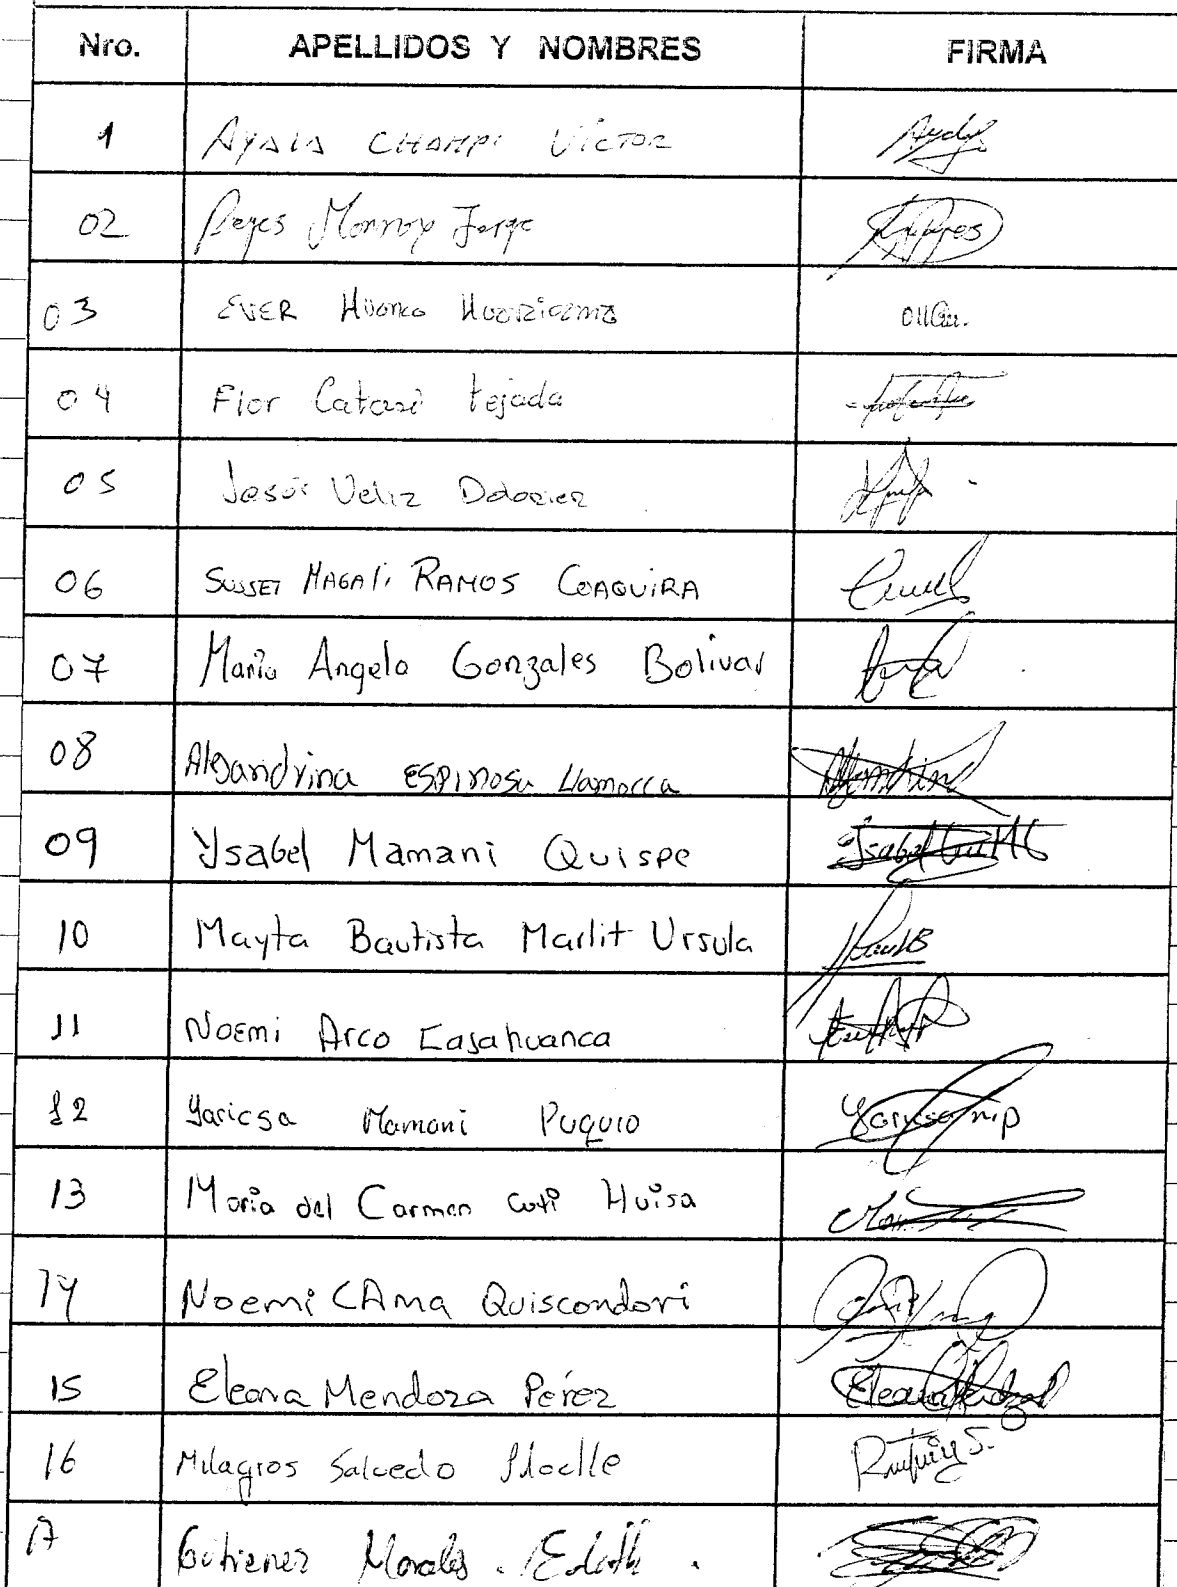 Nro. APELLIDOS Y NOMBRES FIRMA
1 AYALA CHAMPI VICTOR
02 Reyes Monroy Jorge
03 EVER Huanca
04 Flor Catari tejada
05 Jesús Veliz
06 SUSSET MAGALI RAMOS COAQUIRA
07 María Angela Gonzales Bolivar
08 Alejandrina ESPINOSA Llamocca
09 Ysabel Mamani Quispe
10 Mayta Bautista Marlit Ursula
11 Noemi Arco Casahuanca
12 Yaricsa Mamani Puquio
13 Maria del Carmen Coti Huisa
14 Noemi CAma Quiscondori
15 Eleana Mendoza Pérez Eleana
16 Milagros Salcedo
17 Gutierrez Morales . Edith .